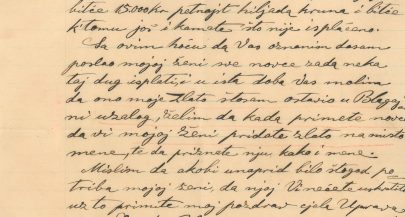 bitće 15.000 kr petnajst hiljada kruna i bitće
k tomu još i kamata što nije isplaćeno.
Sa ovim hoću da Vas oznanim da sam
poslao mojoj ženi sve novce zada neka
taj dug isplatiti u ista doba Vas molim
da ono moje zlato štosam ostavio u Blagaj
ni uzalog želim da kada primete novce
da vi mojoj ženi pridate zlato na misto
mene, te da priznete nju kako i mene.
Mislim da akobi unaprid bilo štogod po
triba mojoj ženi, da njoj Vi nećete uskratiti
uz to primite moj pozdrav cjela Uprava